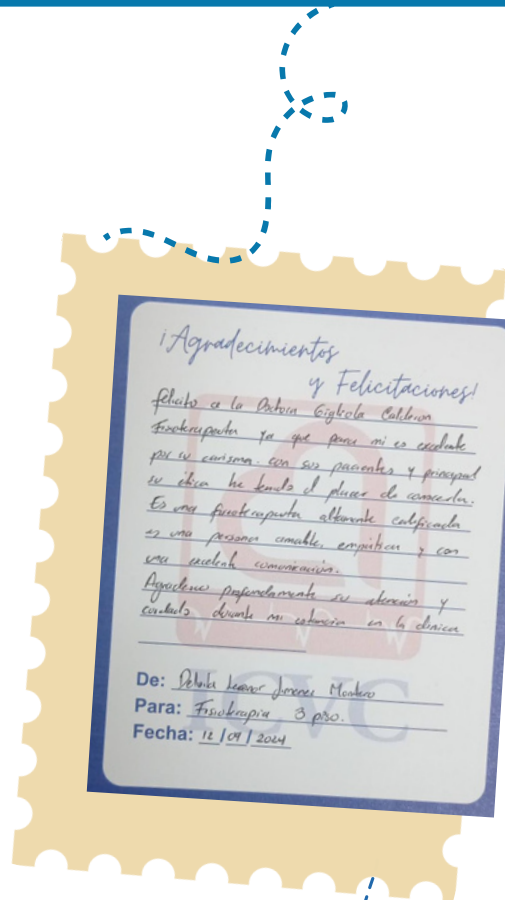 ¡Agradecimientos
y Felicitaciones!
felicito a la Doctora Gigliola Calderon
Fisioterapeuta ya que para mi es excelente
por su carisma con sus pacientes y principal
su ética he tenido el placer de conocerla.
Es una fisioterapeuta altamente calificada
es una persona amable, empática y con
una excelente comunicación.
Agradezco profundamente su atención y
cuidado durante mi estancia en la clinica
De: Leonor Jimenez Montero
Para: Fisioterapia 3 piso.
Fecha: 12/09/2024
ICVC